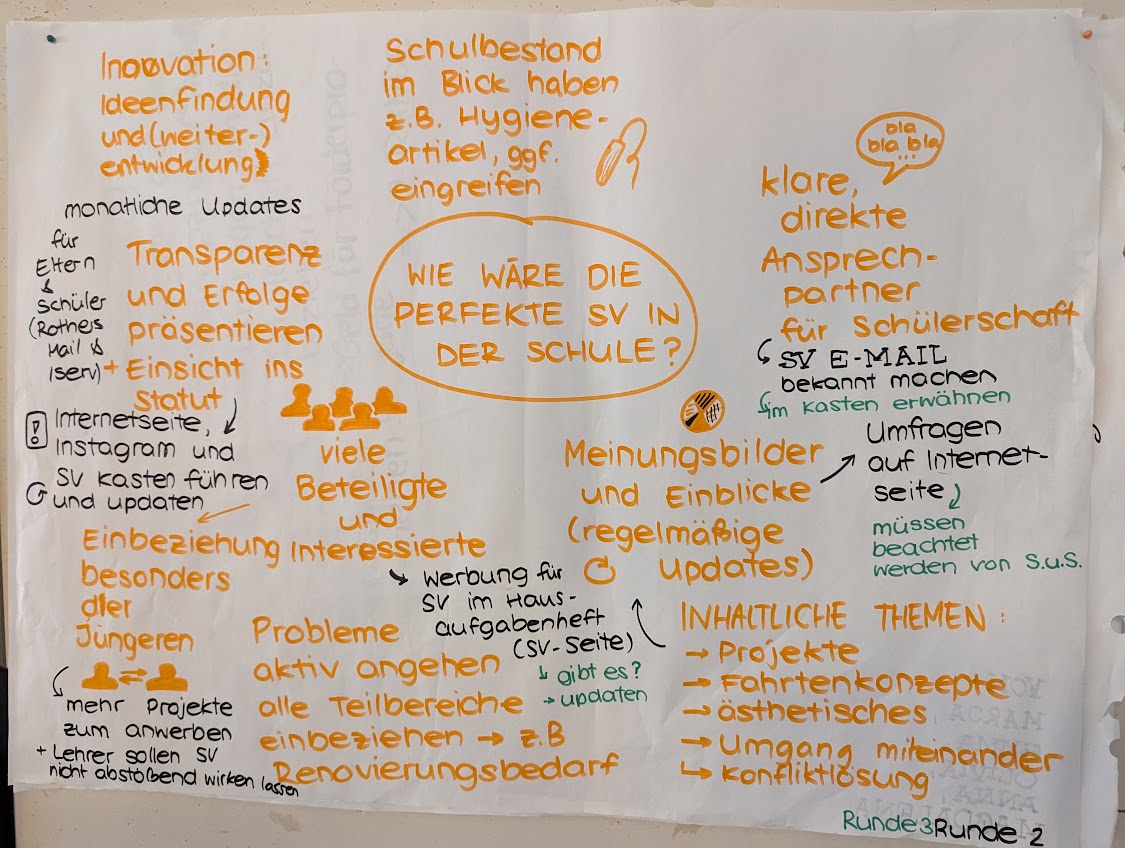 Inovation:
Ideenfindung
und (weiter-)
entwicklung)
Schulbestand
im Blick haben
z.B. Hygiene-
artikel, ggf.
eingreifen
bla
bla bla
...
klare,
direkte
Ansprech-
partner
für Schülerschaft
SV E-MAIL
bekannt machen
im Kasten erwähnen
WIE WÄRE DIE
PERFEKTE SV IN
DER SCHULE?
monatliche Updates
für
Eltern
&
Schüler
(Rothers
Mail &
Iserv)
Transparenz
und Erfolge
präsentieren
+ Einsicht ins
Statut
!
Internetseite,
Instagram und
SV Kasten führen
und updaten
viele
Beteiligte
und
Interessierte
Werbung für
SV im Haus-
aufgabenheft
(SV-Seite)
gibt es?
→ updaten
Einbeziehung
besonders
der
Jüngeren
mehr Projekte
zum anwerben
+ Lehrer sollen SV
nicht abstoßend wirken lassen
Probleme
aktiv angehen
alle Teilbereiche
einbeziehen → z.B
Renovierungsbedarf
Meinungsbilder
und Einblicke
(regelmäßige
updates)
Umfragen
auf Internet-
seite
müssen
beachtet
werden von S.u.S.
INHALTLICHE THEMEN:
→ Projekte
→ Fahrtenkonzepte
→ ästhetisches
→ Umgang miteinander
↳ Konfliktlösung
Runde 3 Runde 2